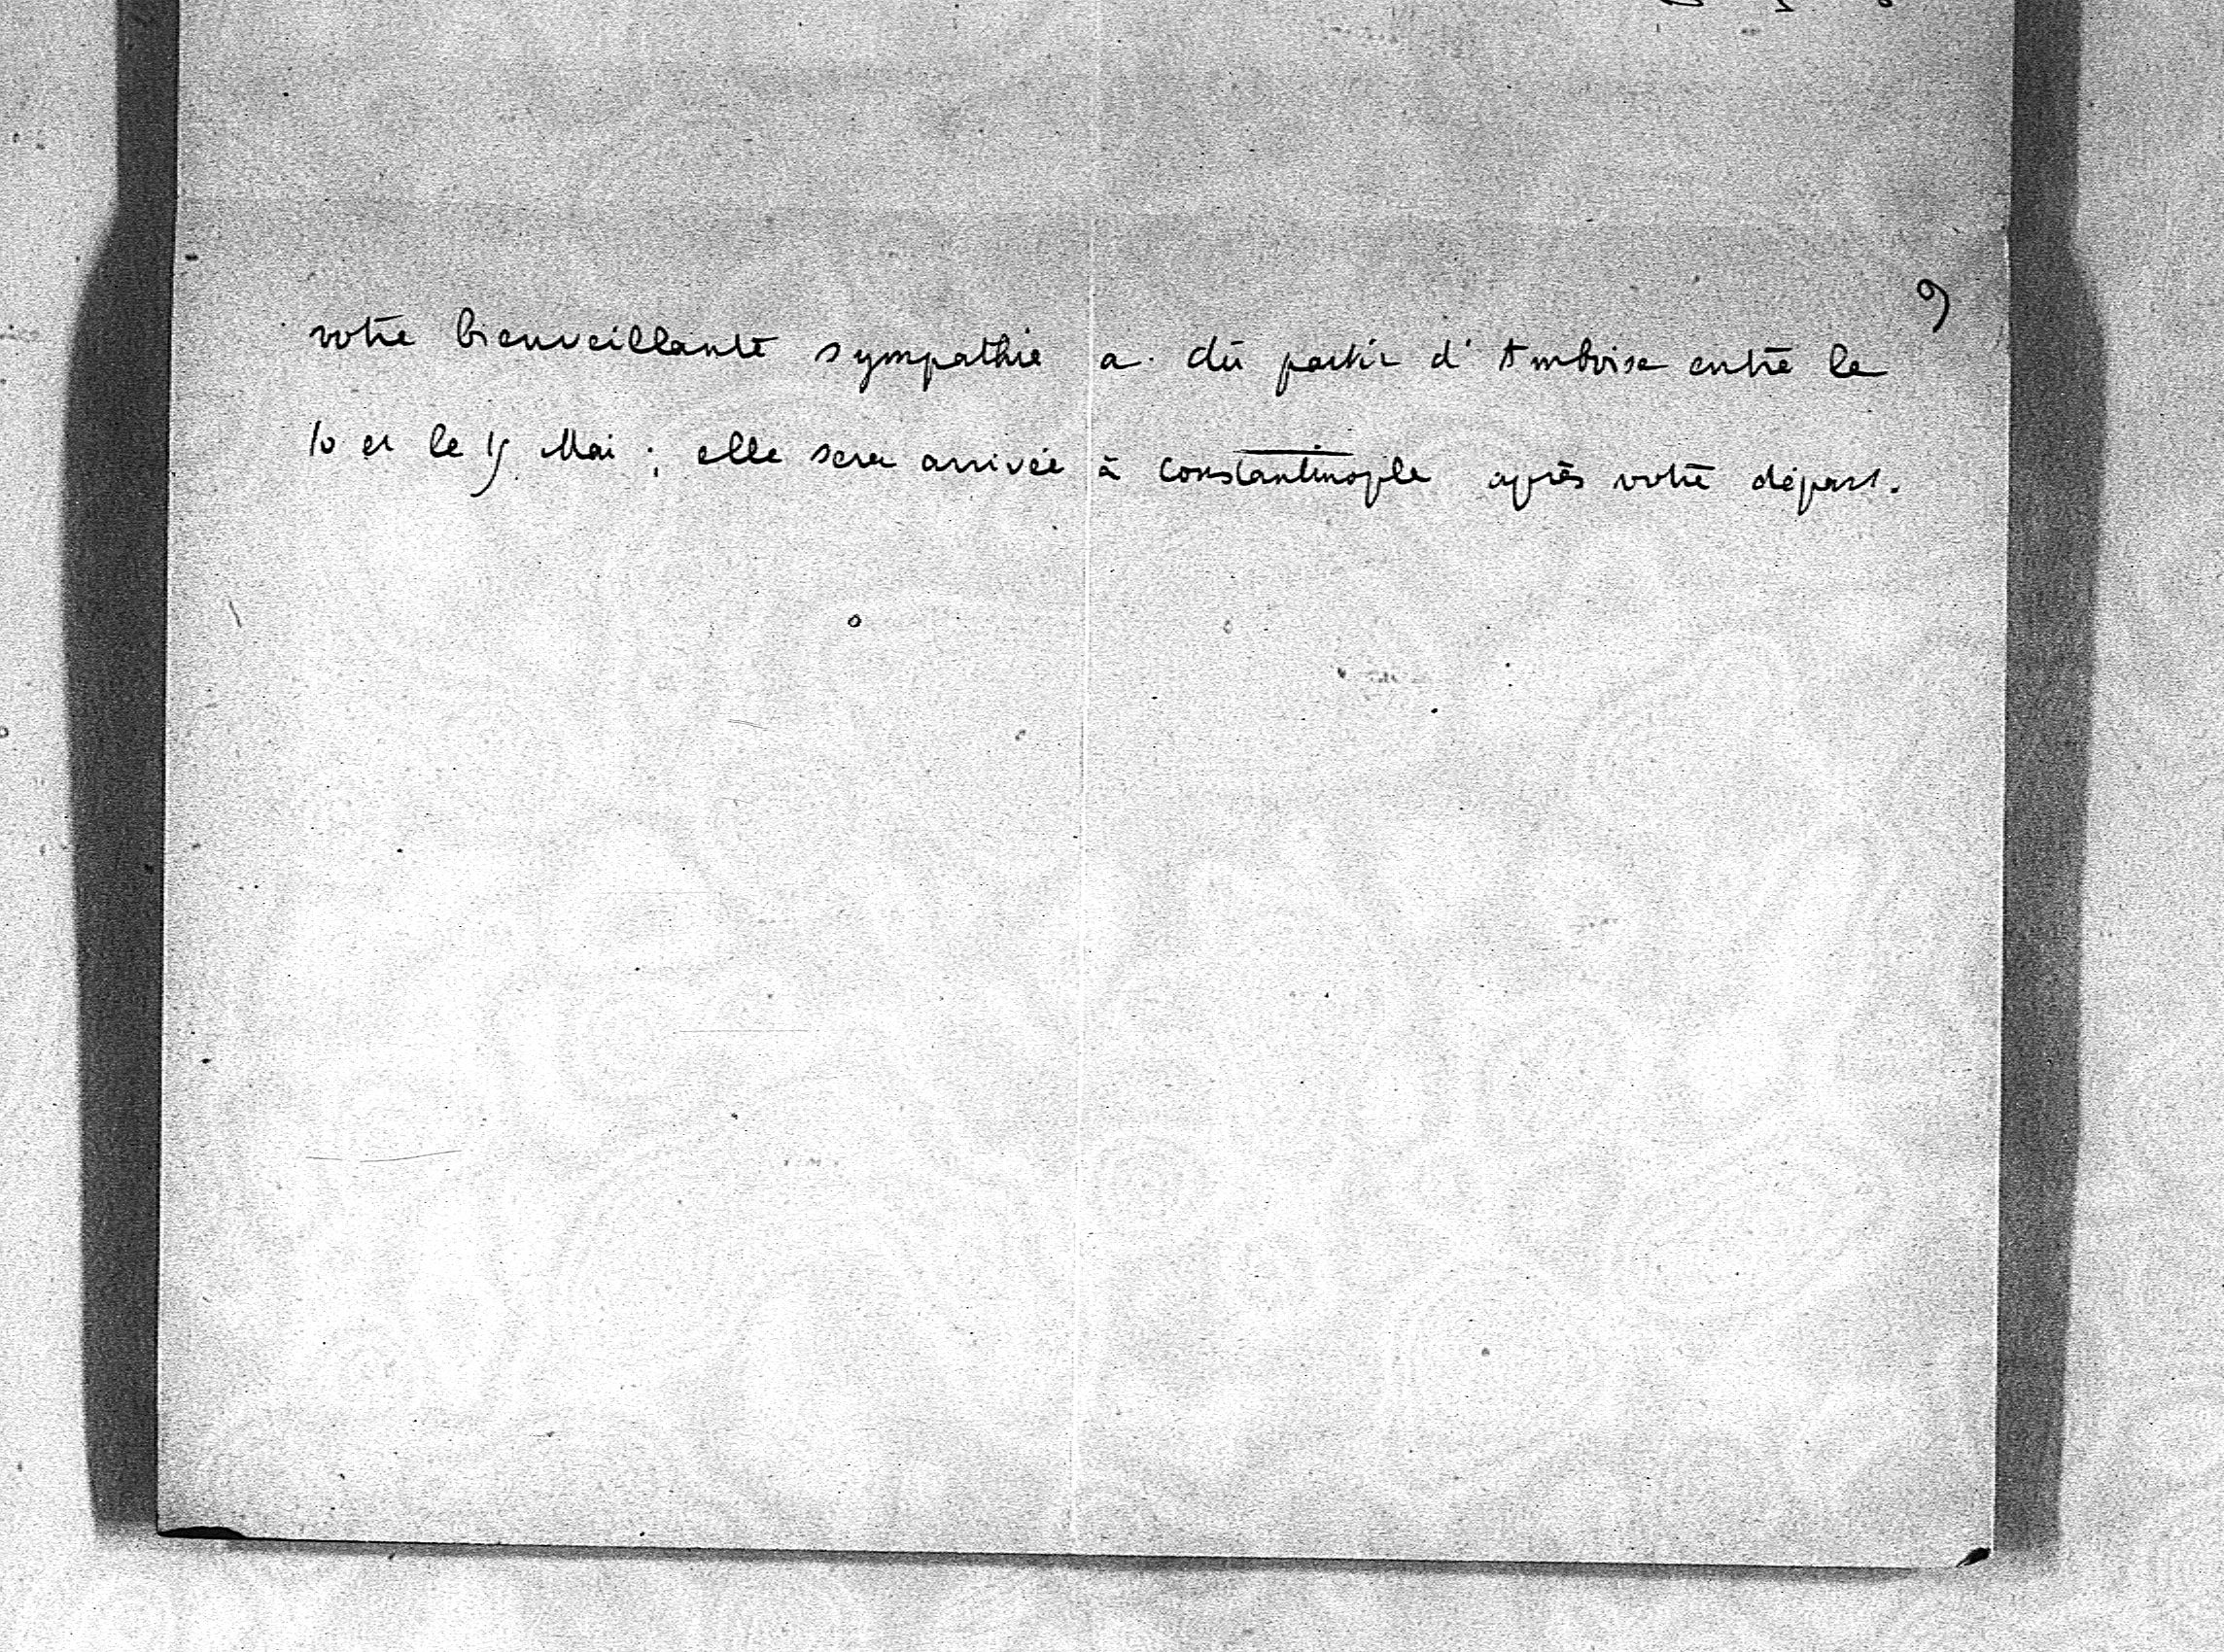 9
votre bienveillante sympathie a dû partir d'Amboise entre le
10 et le 15 Mai ; elle sera arrivée à Constantinople après votre départ.